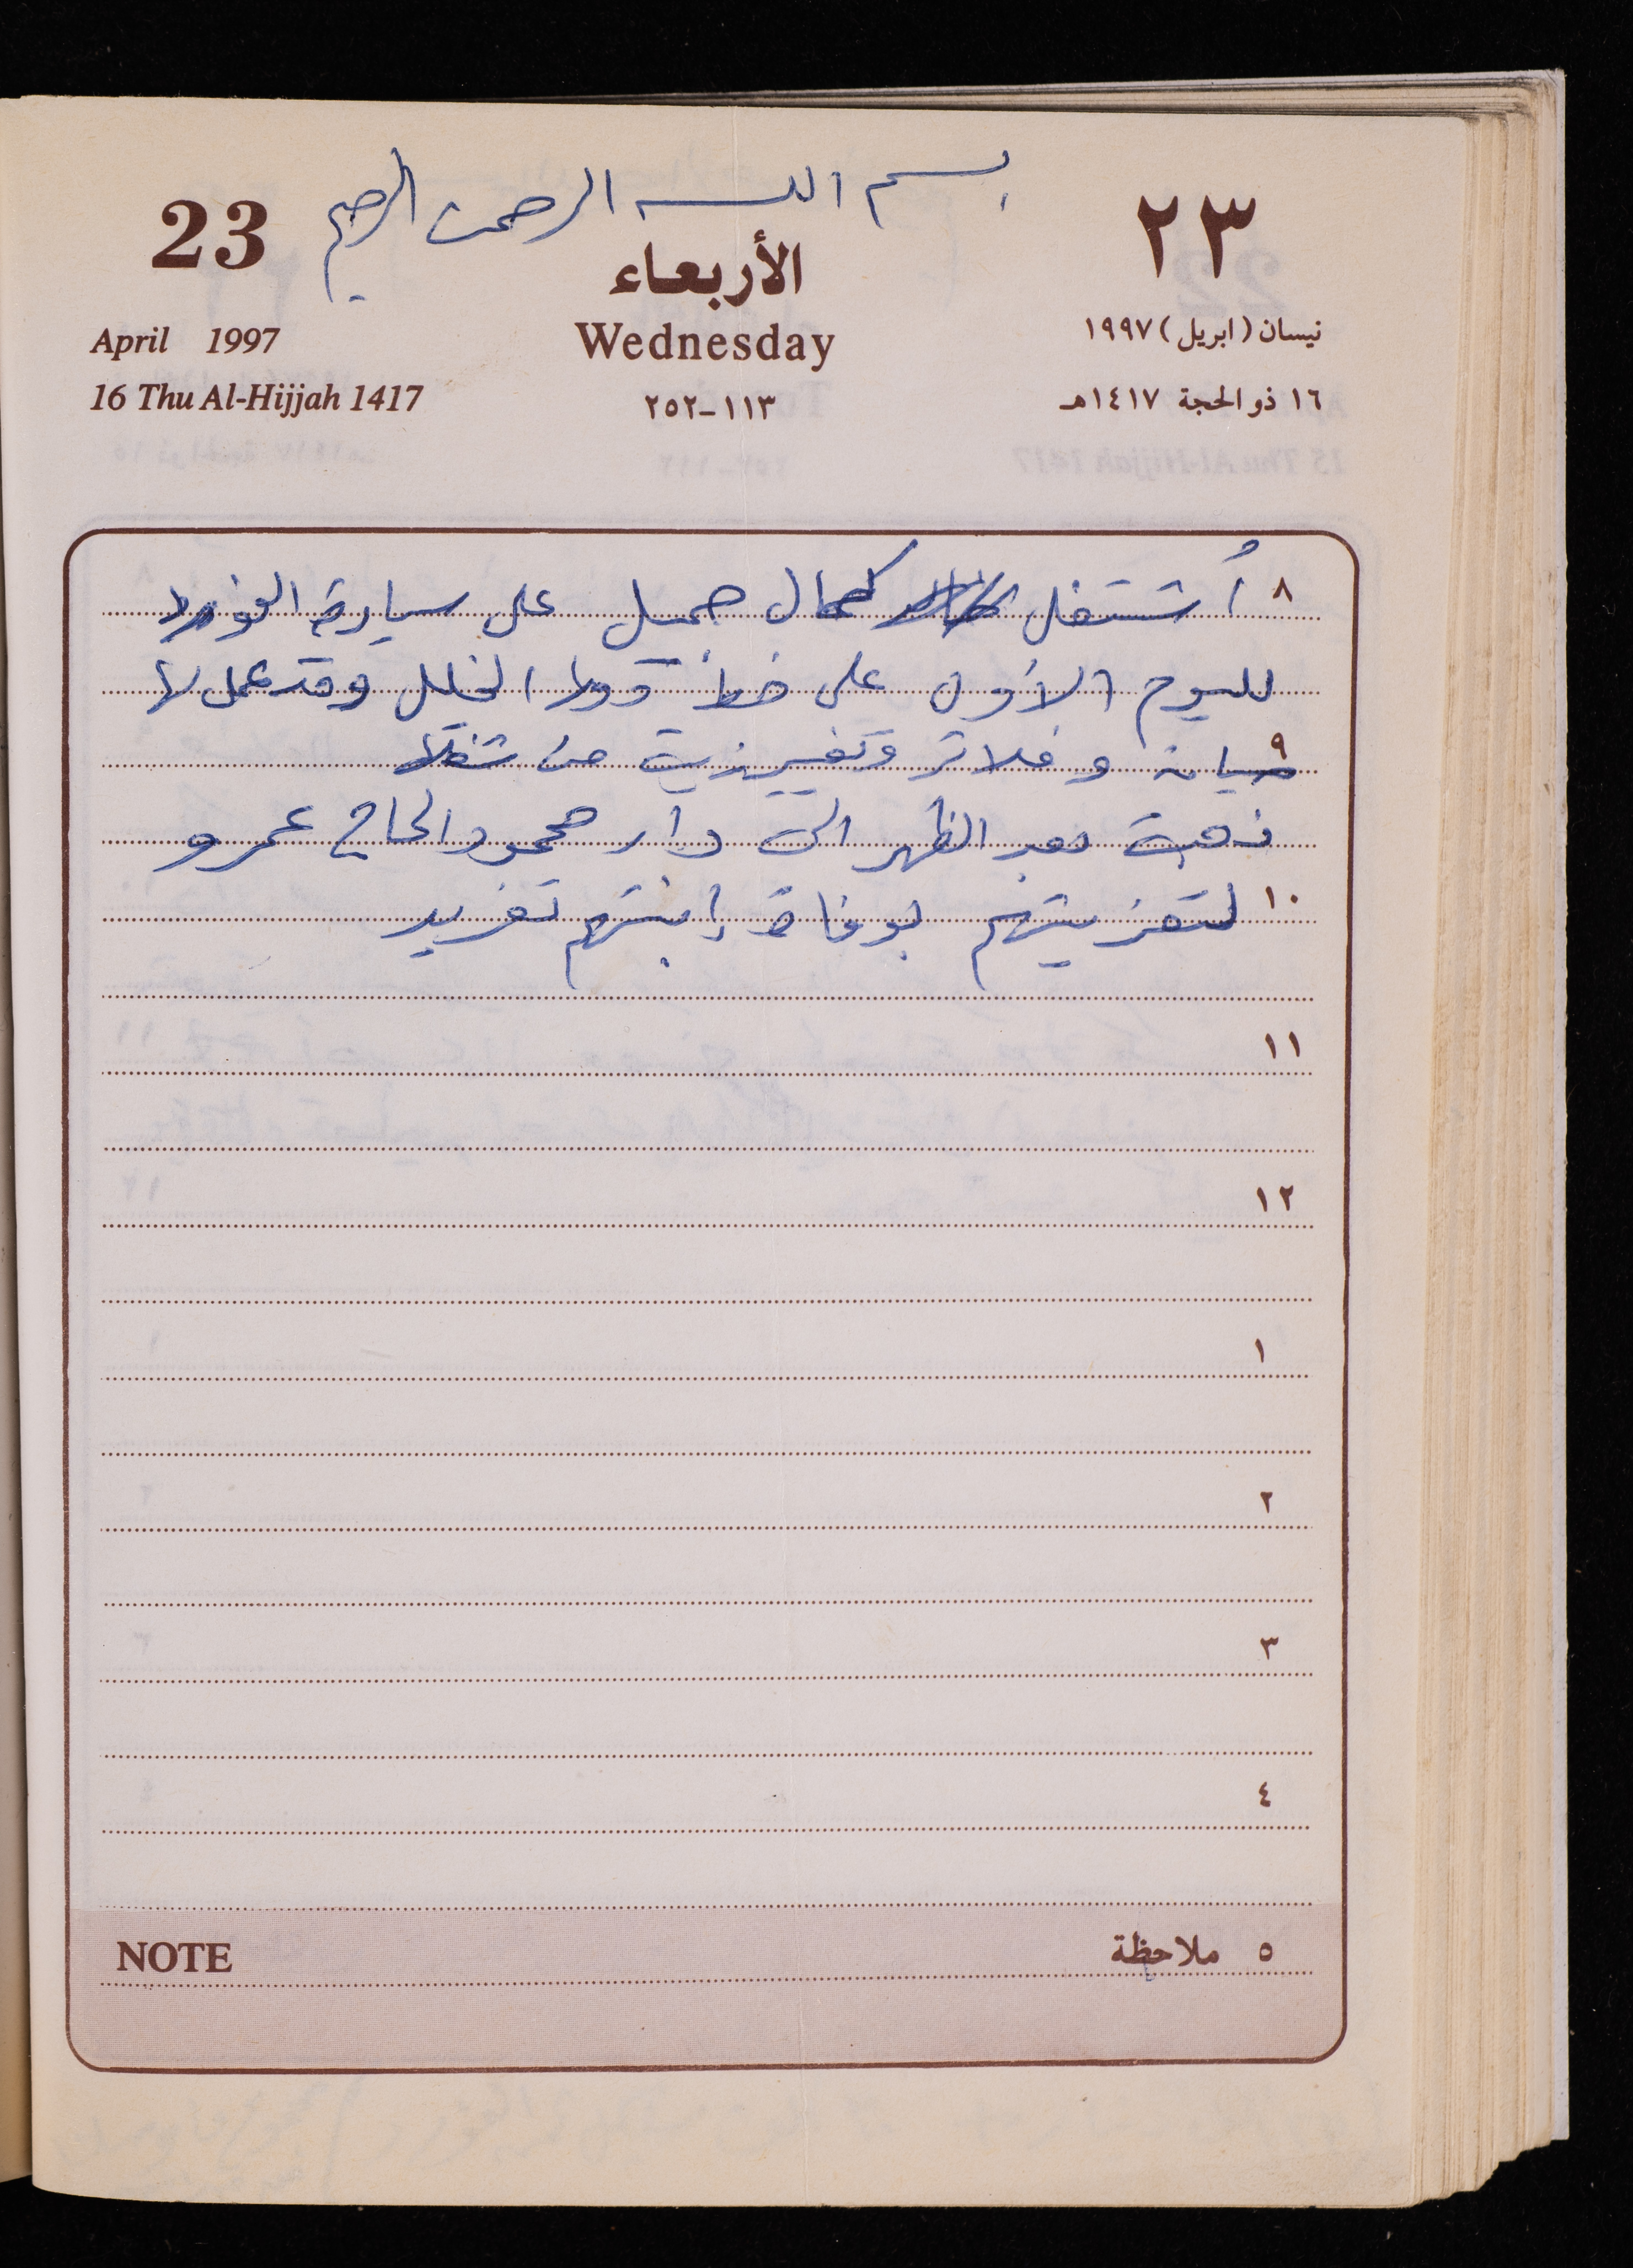 بسم الله الرحمن الرحيم
23
الأربعاء
٢٣
April 1997
Wednesday
نيسان (ابريل) ١٩٩٧
16 Thu Al-Hijjah 1417
١١٣-٢٥٢
١٦ ذو الحجة ١٤١٧هـ
٨ أُشتغل كمال جميل على سيارة الفورد
لليوم الاول على خط دورا الخليل وقد عمل لها
٩ صيانة و فلاتر وتغيير زيت من شغله
ذهبت بعد الظهر الى دار محمود الحاج عمرو
١٠ لتعزيتهم بوفاة إبنتهم تغريد
١١
١٢
١
٢
٣
٤
٥ ملاحظة
NOTE